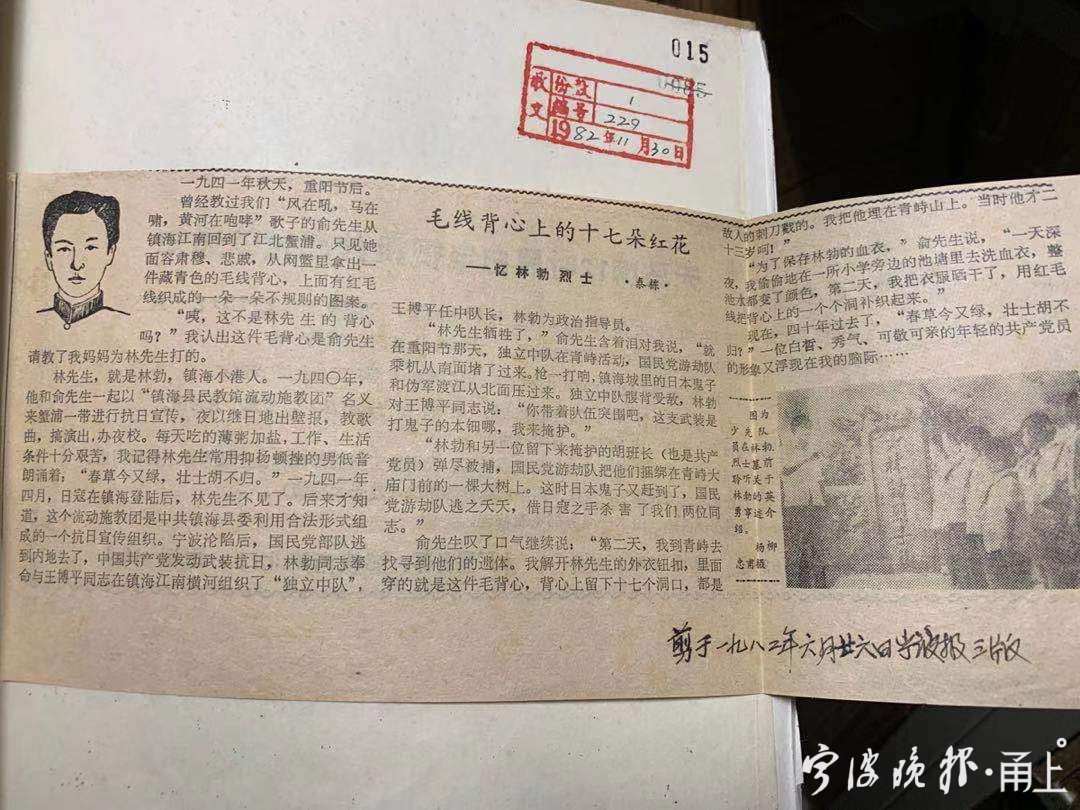 015
收文
份数 1
编号 229
1982年11月30日
一九四一年秋天，重阳节后。
曾经教过我们“风在吼，马在
啸，黄河在咆哮”歌子的俞先生从
镇海江南回到了江北蟹浦。只见她
面容肃穆、悲戚，从网篮里拿出一
件藏青色的毛线背心，上面有红毛
线织成的一朵一朵不规则的图案。
“咦，这不是林先生的背心
吗？”我认出这件毛背心是俞先生
请教了我妈妈为林先生打的。
林先生，就是林勃，镇海小港人。一九四〇年，
他和俞先生一起以“镇海县民教馆流动施教团”名义
来蟹浦一带进行抗日宣传，夜以继日地出壁报，教歌
曲，搞演出，办夜校。每天吃的薄粥加盐，工作、生活
条件十分艰苦，我记得林先生常用抑扬顿挫的男低音
朗诵着：“春草今又绿，壮士胡不归。”一九四一年
四月，日寇在镇海登陆后，林先生不见了。后来才知
道，这个流动施教团是中共镇海县委利用合法形式组
成的一个抗日宣传组织。宁波沦陷后，国民党部队逃
到内地去了，中国共产党发动武装抗日，林勃同志奉
命与王博平同志在镇海江南横河组织了“独立中队”，
毛线背心上的十七朵红花
——忆林勃烈士 ·秦
王博平任中队长，林勃为政治指导员。
“林先生牺牲了，”俞先生含着泪对我说，“就
在重阳节那天，独立中队在青峙活动，国民党游动队
乘机从南面堵了过来。枪一打响，镇海城里的日本鬼子
和伪军渡江从北面压过来。独立中队腹背受敌，林勃
对王博平同志说：“你带着队伍突围吧，这支武装是
打鬼子的本钿哪，我来掩护。”
“林勃和另一位留下来掩护的胡班长（也是共产
党员）弹尽被捕，国民党游动队把他们捆绑在青峙大
庙门前的一棵大树上。这时日本鬼子又赶到了，国民
党游动队逃之夭夭，借日寇之手杀害了我们两位同
志。”
俞先生叹了口气继续说：“第二天，我到青峙去
找寻到他们的遗体。我解开林先生的外衣钮扣，里面
穿的就是这件毛背心，背心上留下十七个洞口，都是
敌人的刺刀戳的。我把他埋在青峙山上。当时他才二
十三岁呵！”
“为了保存林勃的血衣，”俞先生说，“一天深
夜，我偷偷地在一所小学旁边的池塘里去洗血衣，整
池水都变了颜色，第二天，我把衣服晒干了，用红毛
线把背心上的一个个洞补织起来。”
现在，四十年过去了，“春草今又绿，壮士胡不
归？”一位白皙、秀气、可敬可亲的年轻的共产党员
的形象又浮现在我的脑际……
图为
少先队
员在林勃
烈士墓前
聆听关于
林勃的英
勇事迹介
绍。
杨柳
忠甫摄
剪于一九八二年六月廿六日宁波报三版
宁波晚报·甬上